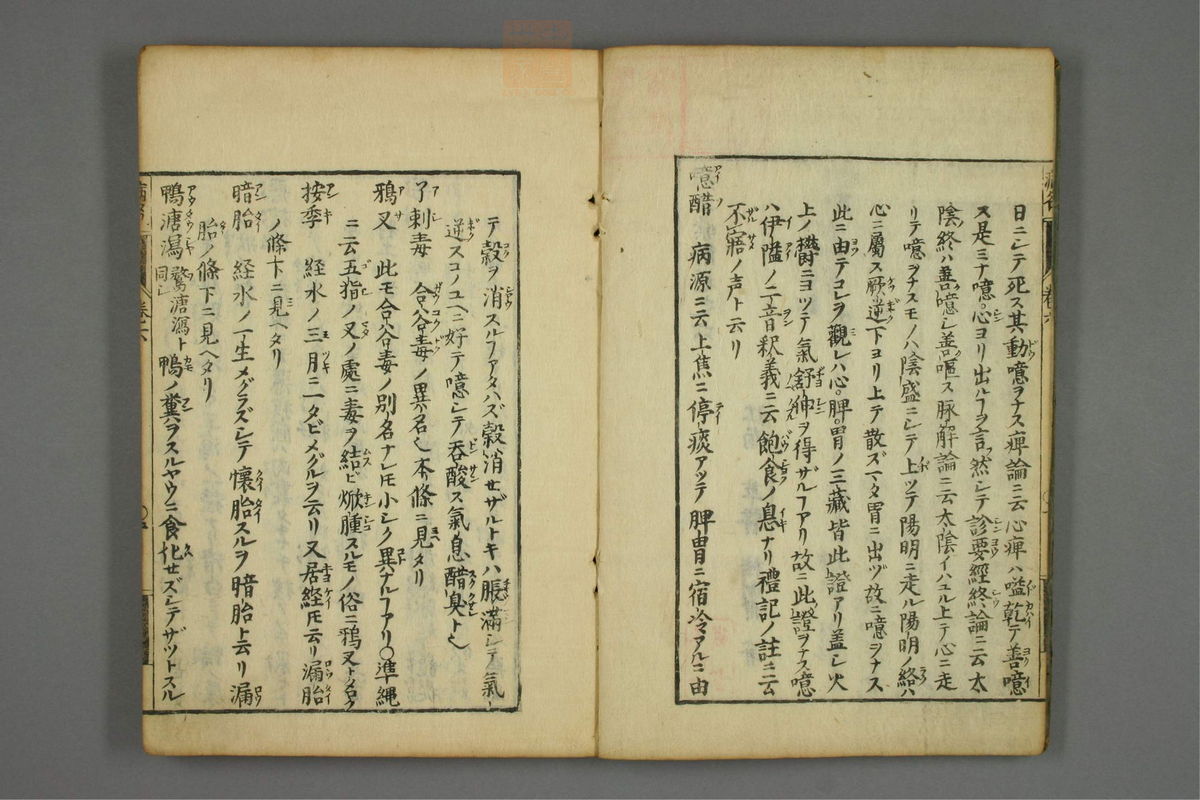 日ニシテ死ス其動噫ヲナス痺論ニ云心痺ハ嗌乾テ善噫
ス是ミナ噫心ヨリ出ルヿヲ言然シテ診要経終論ニ云太
陰終ハ善噫シ善嘔ス脉解論ニ云太陰イハユル上テ心ニ走
リテ噫ヲナスモノハ陰盛ニシテ上ツテ陽明ニ走ル陽明ノ絡ハ
心ニ屬ス厥逆下ヨリ上テ散ズ一タヒ胃ニ出ヅ故ニ噫ヲナス
此ニ由テコレヲ觀レハ心脾胃ノ三藏皆此證アリ盖シ火
上ノ欝ニヨツテ氣舒伸ヲ得ザルヿアリ故ニ此證ヲナス噫
ハ伊隘ノ二音釈義ニ云飽食ノ息ナリ禮記ノ註ニ云
不寤ノ声ト云リ
噫醋 病源ニ云上焦ニ停痰アツテ脾胃ニ宿冷アルニ由
テ穀ヲ消スルヿアタハズ穀消セザルトキハ脹滿シテ氣
逆スコノユヘニ好テ噫シテ呑酸ス氣息醋臭ト也
了刺毒 合谷毒ノ異名也本條ニ見タリ
鴉叉 此モ合谷毒ノ別名ナレ𪜈小シク異ナルヿアリ〇準縄
ニ云五指ノ叉ノ處ニ毒ヲ結ビ焮腫スルモノ俗ニ鴉叉ト名ク
按季 経水ノ三月ニ一タビメグルヲ云リ又居経𪜈云リ漏胎
ノ條下ニ見ヘタリ
暗胎 経水ノ一生メグラズシテ懷胎スルヲ暗胎ト云リ漏
胎ノ條下ニ見ヘタリ
鴨溏瀉 鶩溏瀉ト同シ 鴨ノ糞ヲスルヤウニ食化セズシテザツトスル